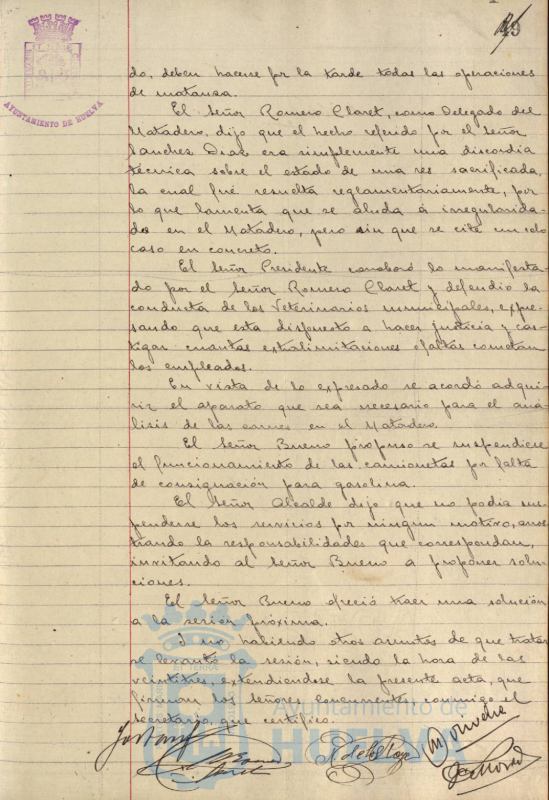 49
AYUNTAMIENTO DE HUELVA
do, deben hacerse por la tarde todas las operaciones
de matanza.
El Señor Romero Claret, como Delegado del
Matadero, dijo que el hecho referido por el Señor
Sanchez Diaz era simplemente una discordia
técnica sobre el estado de una res sacrificada,
la cual fué resuelta reglamentariamente, por
lo que lamenta que se aluda á irregularida-
des en el Matadero, pero sin que se cite un solo
caso en concreto.
El Señor Presidente corroboró lo manifesta-
do por el Señor Romero Claret y defendió la
conducta de los Veterinarios municipales, expre-
sando que esta dispuesto a hacer justicia y cas-
tigar cuantas extralimitaciones ó faltas cometan
los empleados.
En vista de lo expresado se acordó adqui-
rir el aparato que sea necesario para el aná-
lisis de las carnes en el Matadero.
El Señor Bueno propuso se suspendiese
el funcionamiento de las camionetas por falta
de consignación para gasolina.
El Señor Alcalde dijo que no podia sus-
penderse los servicios por ningun motivo, arros-
trando la responsabilidades que correspondan,
invitando al Señor Bueno a proponer solu-
ciones.
El Señor Bueno ofreció traer una solución
a la sesión próxima.
I no habiendo otros asuntos de que tratar
se levantó la sesión, siendo la hora de las
veintitres, extendiendose la presente acta, que
firman los señores concurrentes, conmigo el
secretario, que certifico.
Ayuntamiento de
HUELVA